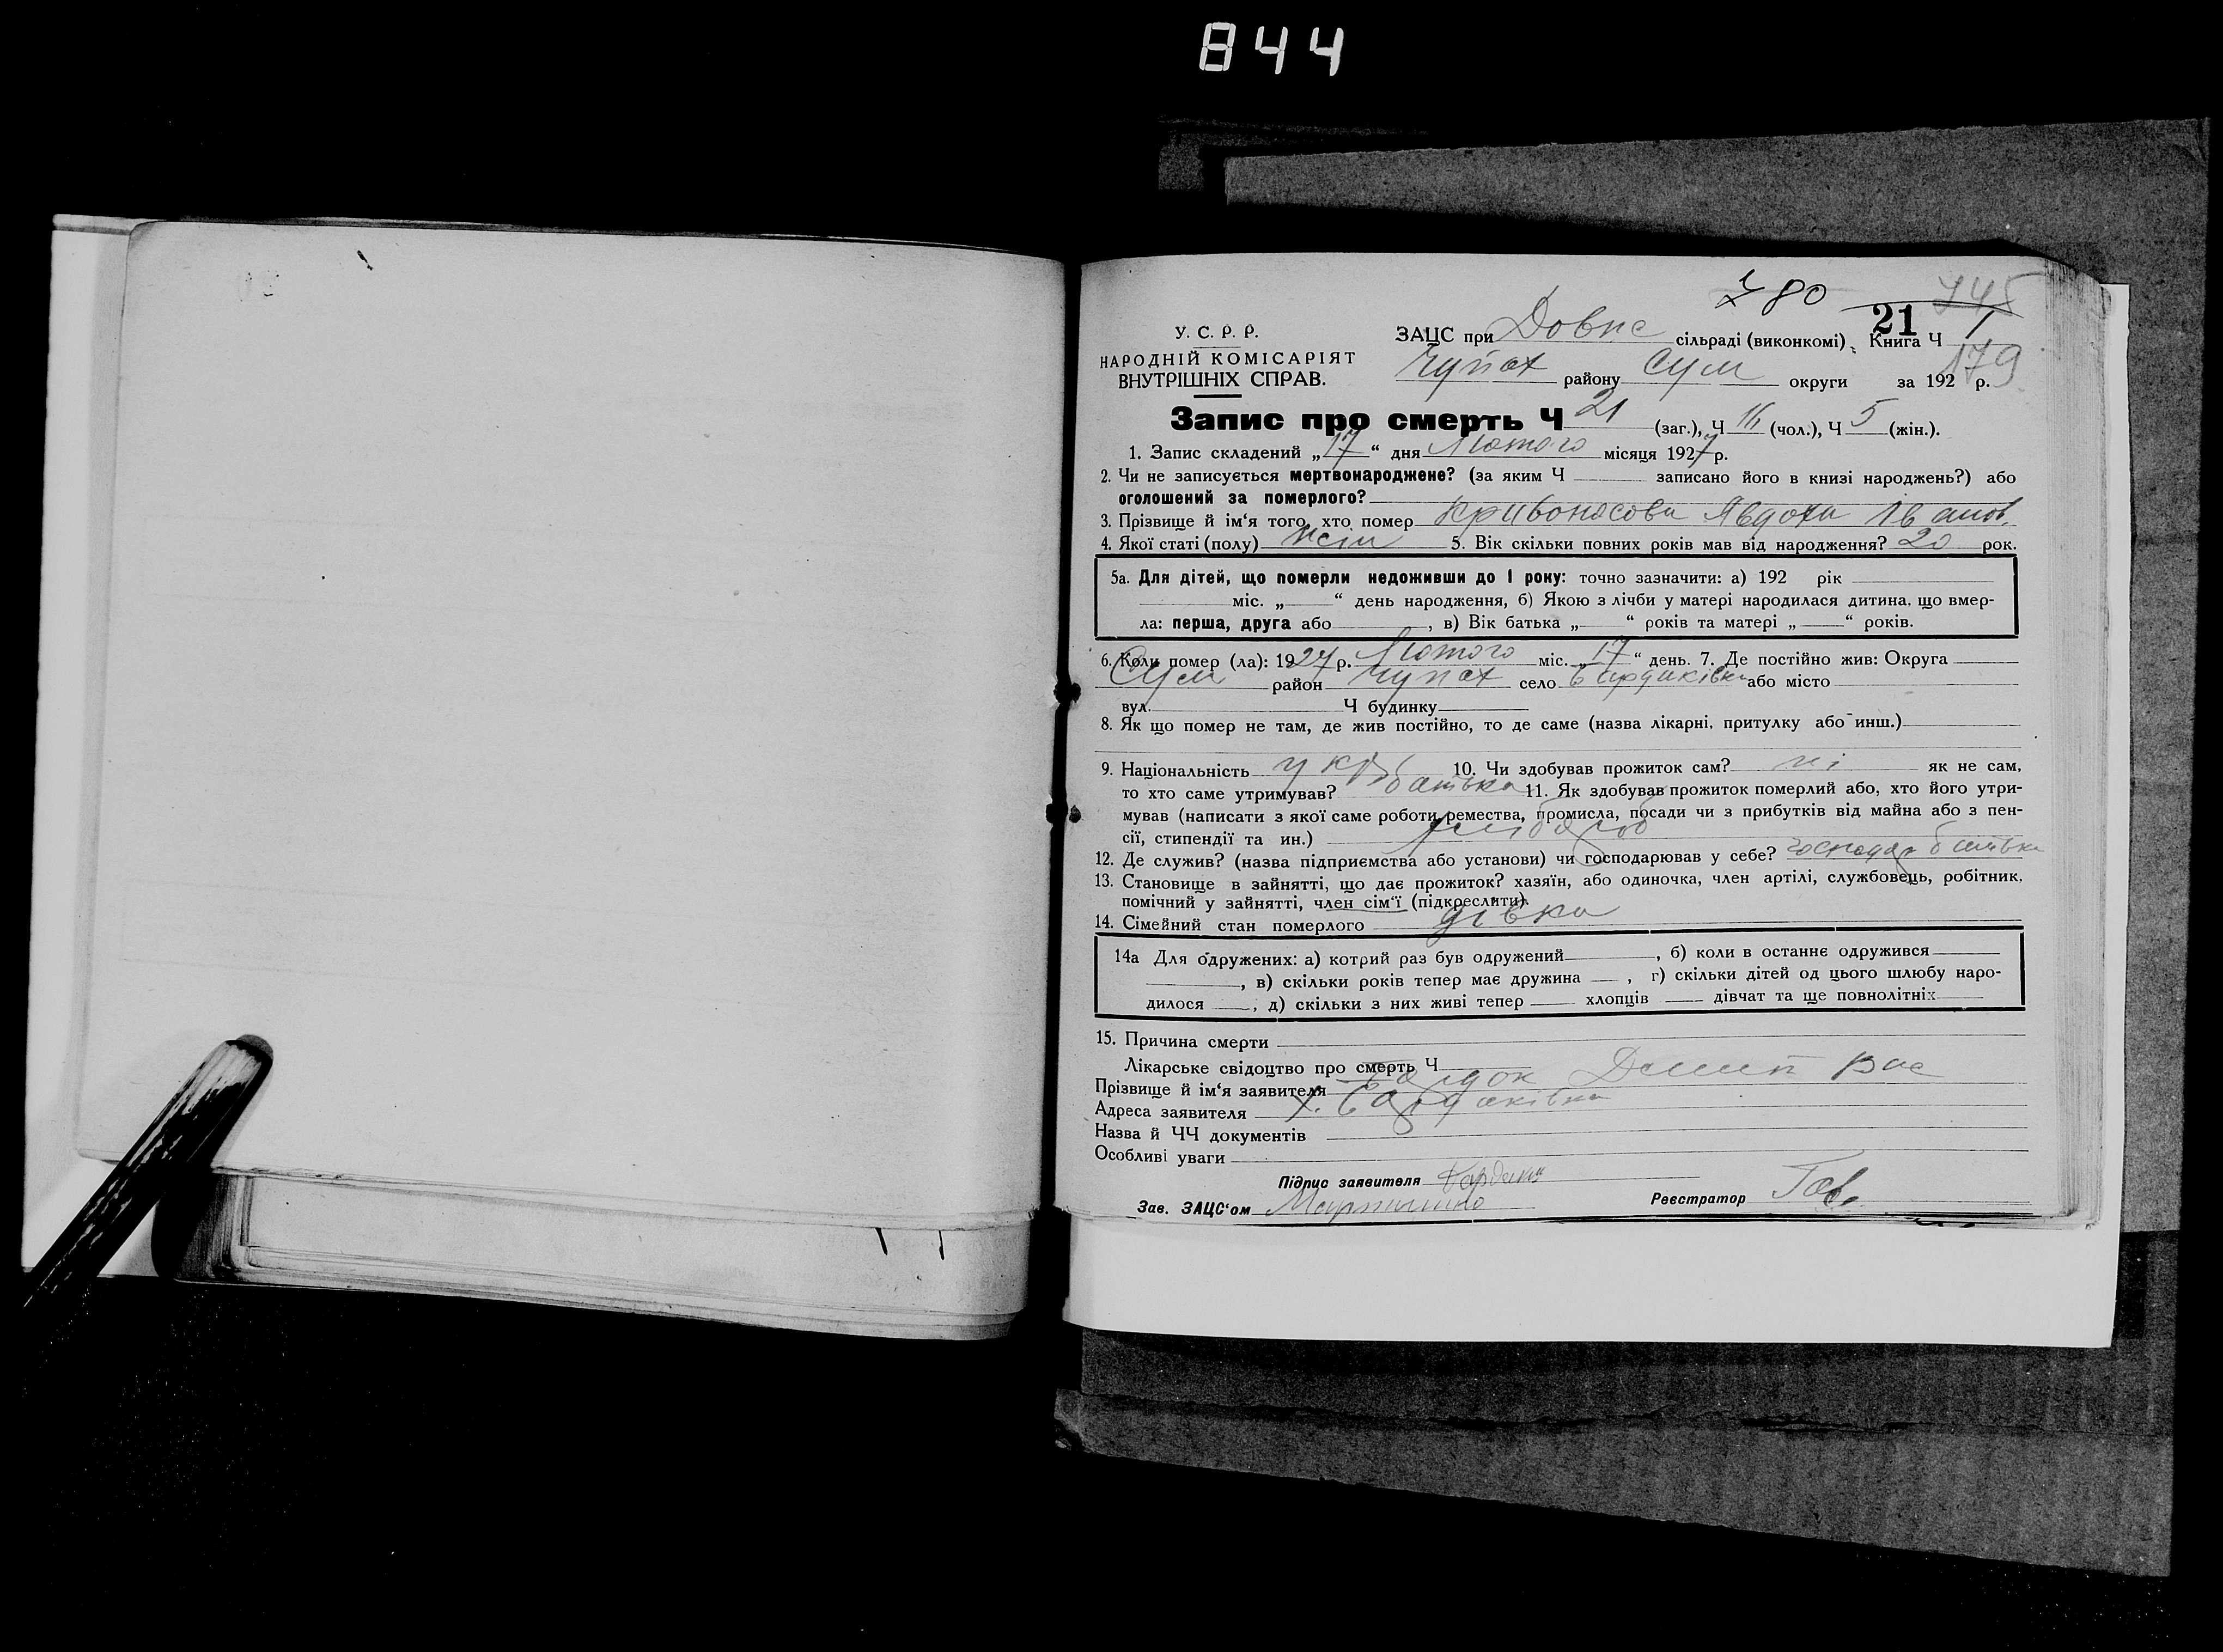 844
780 745
У. С. Р. Р. ЗАЦС при Довпс сільраді (виконкомі) 21 Книга Ч 1
НАРОДНІЙ КОМІСАРІЯТ Чупах району Сум округи за 192 р. 179
ВНУТРІШНІХ СПРАВ.
Запис про смерть Ч 21 (заг.), Ч 16 (чол.), Ч 5 (жін.).
1. Запис складений „17“ дня Лютого місяця 1927 р.
2. Чи не записується мертвонароджене? (за яким Ч записано його в книзі народжень?) або
оголошений за померлого?
3. Прізвище й ім‘я того, хто помер Кривоносова Явдоха Іванов.
4. Якої статі (полу) жін 5. Вік скільки повних років мав від народження? 20 рок.
5а. Для дітей, що померли недоживши до 1 року: точно зазначити: а) 192 рік
міс. „ “ день народження, б) Якою з лічби у матері народилася дитина, що вмер-
ла: перша, друга або , в) Вік батька „ “ років та матері „ “ років.
6. Коли помер (ла): 1927 р. Лютого міс. „17“ день. 7. Де постійно жив: Округа
Сум район Чупах село Бардаківка або місто
вул. Ч будинку
8. Як що помер не там, де жив постійно, то де саме (назва лікарні, притулку або инш.)
9. Національність укр 10. Чи здобував прожиток сам? ні як не сам,
то хто саме утримував? батько 11. Як здобував прожиток померлий або, хто його утри-
мував (написати з якої саме роботи, ремества, промисла, посади чи з прибутків від майна або з пен-
сії, стипендії та ин.) хлібороб
12. Де служив? (назва підприємства або установи) чи господарював у себе? господар батька
13. Становище в зайнятті, що дає прожиток? хазяїн, або одиночка, член артілі, службовець, робітник,
помічний у зайнятті, член сім‘ї (підкреслити).
14. Сімейний стан померлого дівка
14а Для одружених: а) котрий раз був одружений , б) коли в останнє одружився
, в) скільки років тепер має дружина , г) скільки дітей од цього шлюбу наро-
дилося , д) скільки з них живі тепер хлопців дівчат та ще повнолітніх
15. Причина смерти
Лікарське свідоцтво про смерть Ч
Прізвище й ім‘я заявителя Бардок Демит Вас
Адреса заявителя х. Бардаківка
Назва й ЧЧ документів
Особливі уваги
Підпис заявителя Бардаки
Зав. ЗАЦС‘ом Реєстратор Гав